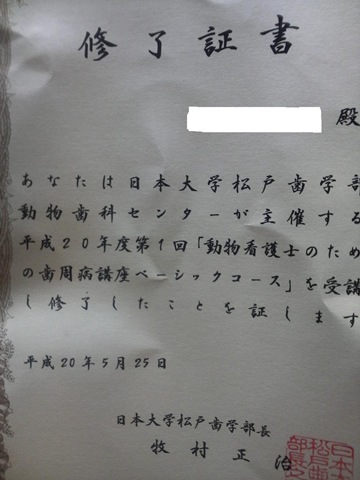 修了証書
殿
あなたは日本大学松戸歯学部
動物歯科センターが主催する
平成20年度第1回「動物看護士のため
の歯周病講座ベーシックコース」を受講
し修了したことを証します
平成20年5月25日
日本大学松戸歯学部長
牧村正治
日本
松戸歯
部長之